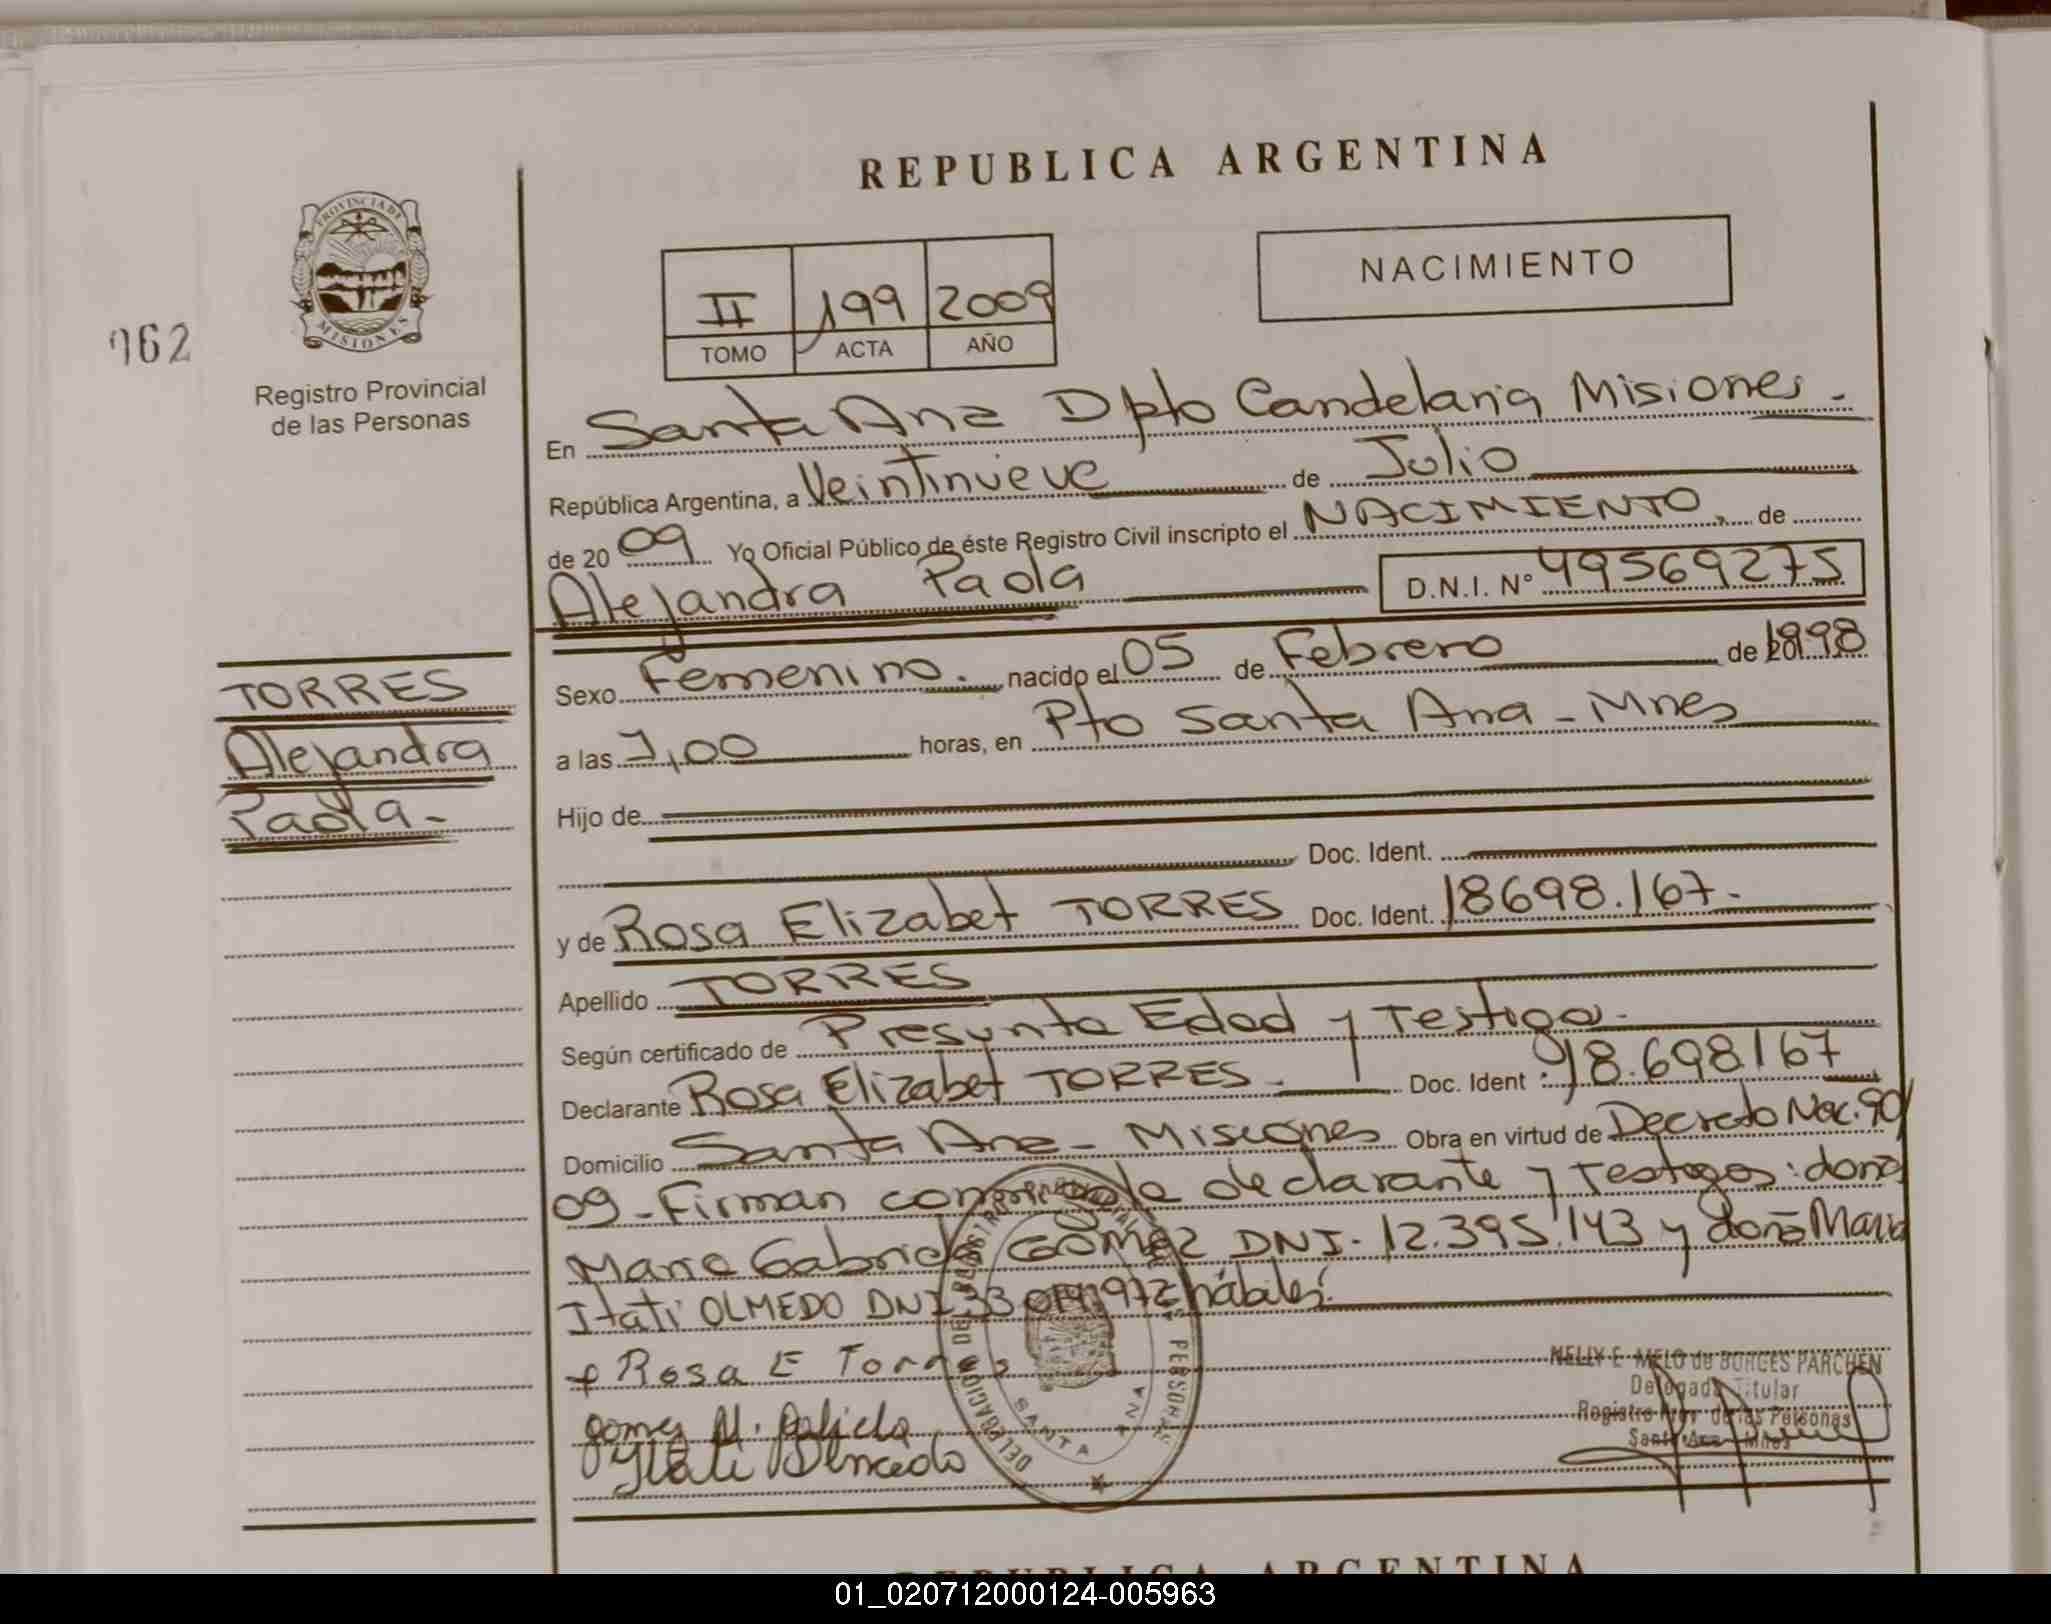 REPUBLICA ARGENTINA
PROVINCIA DE MISIONES
NACIMIENTO
II 199 2009
TOMO ACTA AÑO
162
Registro Provincial
de las Personas
En Santa Ana Dpto Candelaria Misiones.
República Argentina, a Veintinueve de Julio
de 2009 Yo Oficial Público de éste Registro Civil inscripto el NACIMIENTO, de
Alejandra Paola D.N.I. Nº 49569275
TORRES
Alejandra
Paola-
Sexo Femenino. nacido el 05 de Febrero de 1998
a las 7,00 horas, en Pto Santa Ana - Mnes
Hijo de
Doc. Ident.
y de Rosa Elizabet TORRES Doc. Ident. 18698.167-
Apellido TORRES
Según certificado de Presunta Edad y Testigos.
Declarante Rosa Elizabet TORRES. Doc. Ident. 18.698.167
Domicilio Santa Ana - Misiones Obra en virtud de Decreto Nac. 90/
09-Firman conmigo la declarante y Testigos: doña
Maria Gabriela Gómez DNI. 12.395.143 y doña Maria
Itati OLMEDO DNI 33 972 hábiles.
Rosa E Torres
gomez
Itati Olmedo
DELEGACION DEL REGISTRO PROVINCIAL DE LAS PERSONAS
SANTA ANA
NELLY E. MELO de BORGES PARCHEN
Delegada Titular
Registro Prov. de las Personas
Santa Ana - Mnes
REPUBLICA ARGENTINA
01_020712000124-005963